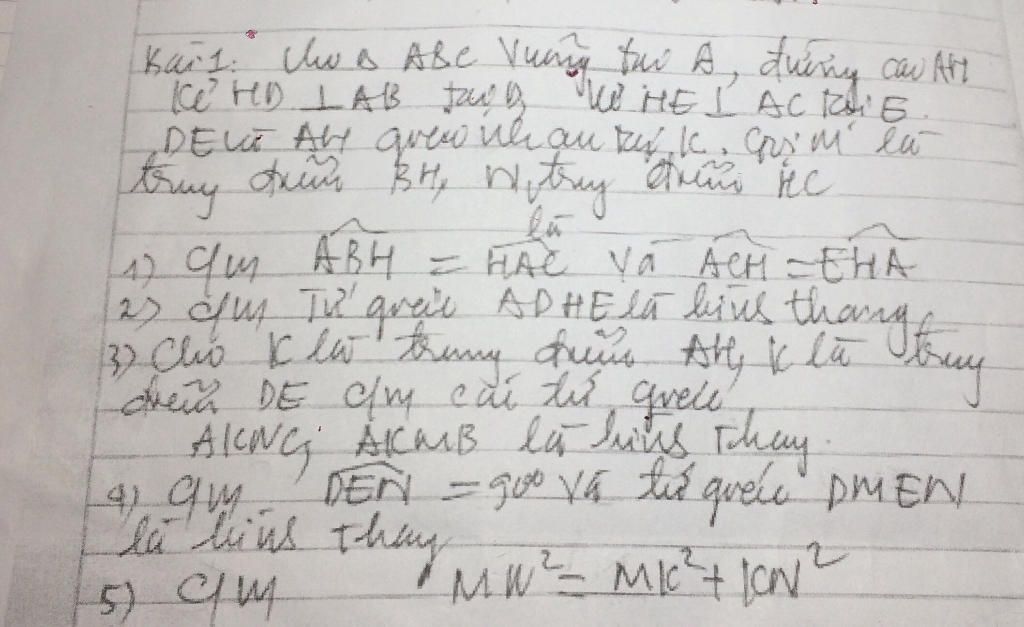 Bài 1: Cho Δ ABC Vuông tại A, đường cao AH
Kẻ HD ⊥ AB tại D, Kẻ HE ⊥ AC tại E.
DE và AH giao nhau tại K. Gọi M là
trung điểm BH, N là trung điểm HC
1) C/m ABH = HAC và ACH = EHA
2) C/m Tứ giác ADHE là hình thang
3) Cho K là trung điểm AH, K là trung
điểm DE C/m các tứ giác
AKNC, AKMB là hình thang.
4) C/m DEN = 90⁰ và tứ giác DMEN
là hình thang
5) C/m MN² = MK² + KN²